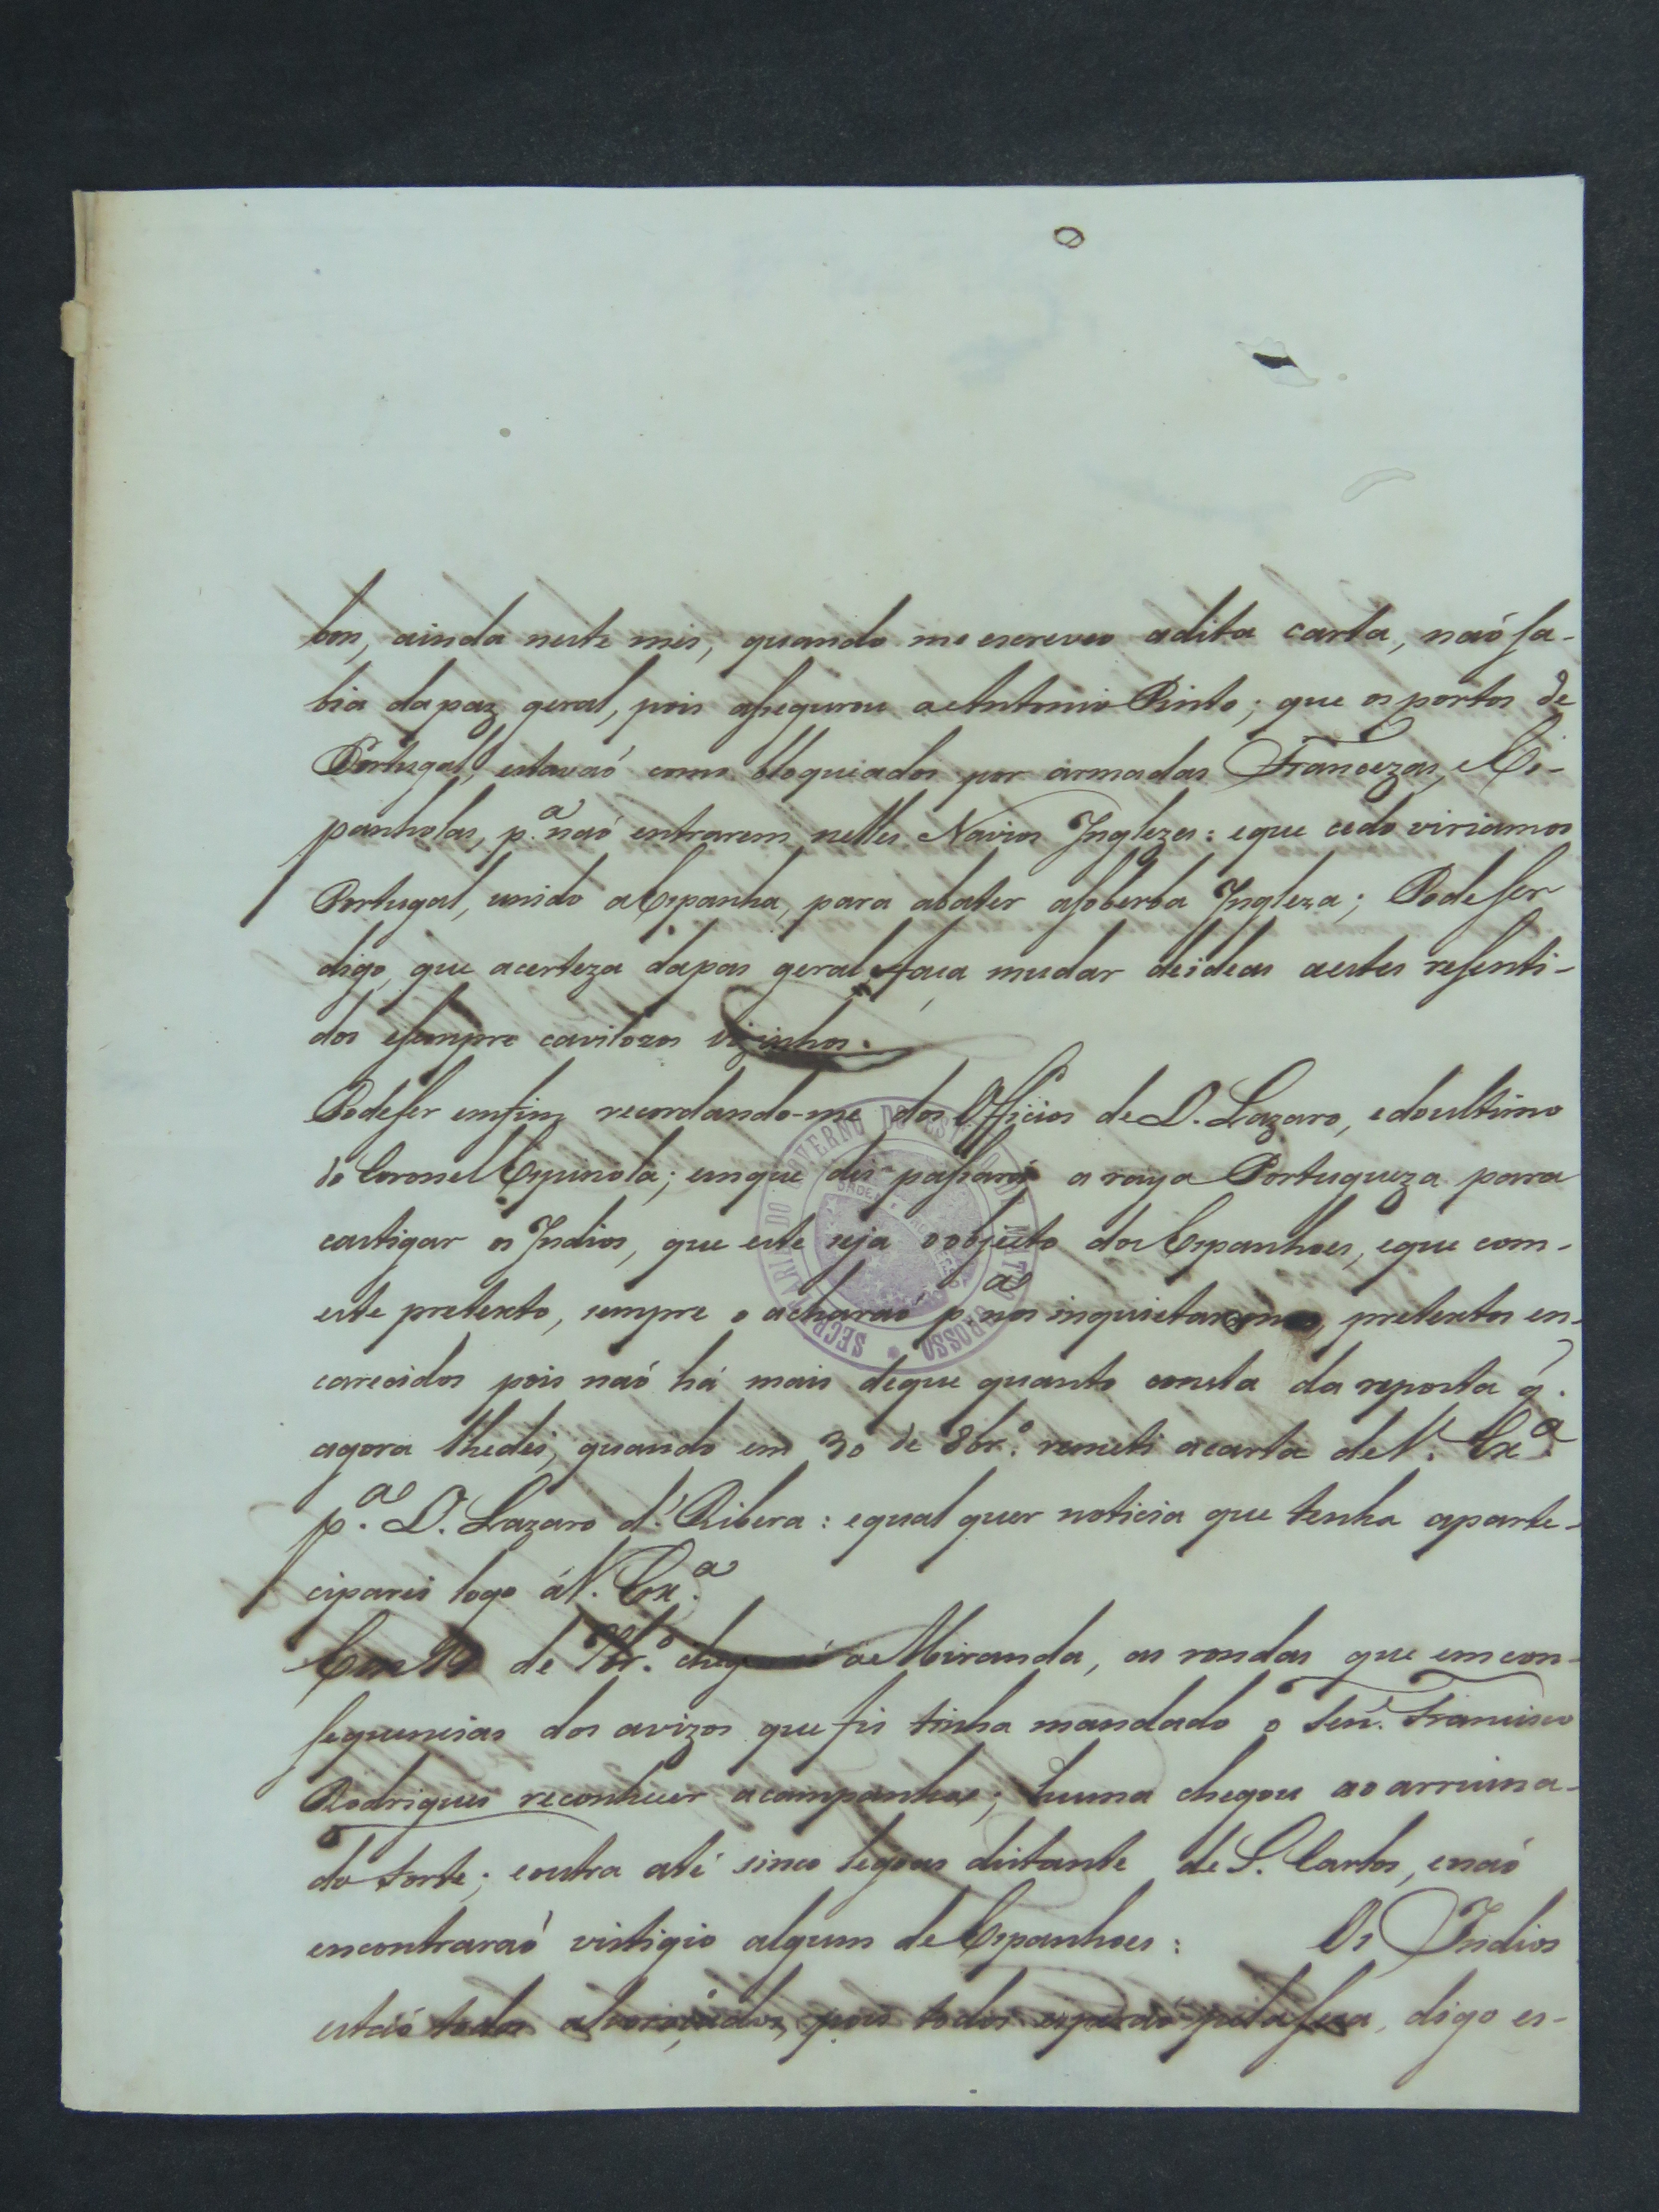 bon, ainda neste mes, quando me escreveo adita carta, naó sa-
bia dapaz geral, pois assegurou a Antonio Pinto; que os portos de
Portugal, estavaó como bloqueados por armadas Francezas, e Es-
panholas, p.ª naó entrarem nelles Navios Inglezes: eque cedo viriamos
Portugal, unido a Espanha, para abater asoberba Ingleza; Pode ser
digo, que acerteza dapas geral, faça mudar deideas aestes resenti-
dos esempre cavilozos vizinhos.
Podeser emfim recordando-me dos Officios de D. Lazaro, edoultimo
do Coronel Espinola; emque diz passará a raya Portugueza para
castigar os Indios, que este seja oobjecto dos Espanhoes, eque com-
este pretexto, sempre o acharaó p.ª nos inquietarem, pretextos en-
carecidos pois naó há mais deque quanto consta da reposta q.
agora lhedei, quando em 30 de 8br.º remeti acarta de V. Ex.ª
p.ª D. Lazaro d' Ribera: equal quer noticia que tenha aparte-
ciparei logo áV. Ex.ª
Em de br.º a Miranda, as rondas que emcon-
sequencias dos avizos que fis tinha mandado o Ten. Francisco
Rodrigues reconhecer acampanha; huma chegou ao arruina-
do forte; eoutra até sinco legoas distante de S. Carlos, enaó
encontraraó vistigio algum de Espanhoes: Os Indios
estaó todos alvoroçados, pois todos esperaó pela sua, digo es-
SECRETARIA DO GOVERNO DO ESTADO DE MATTO GROSSO